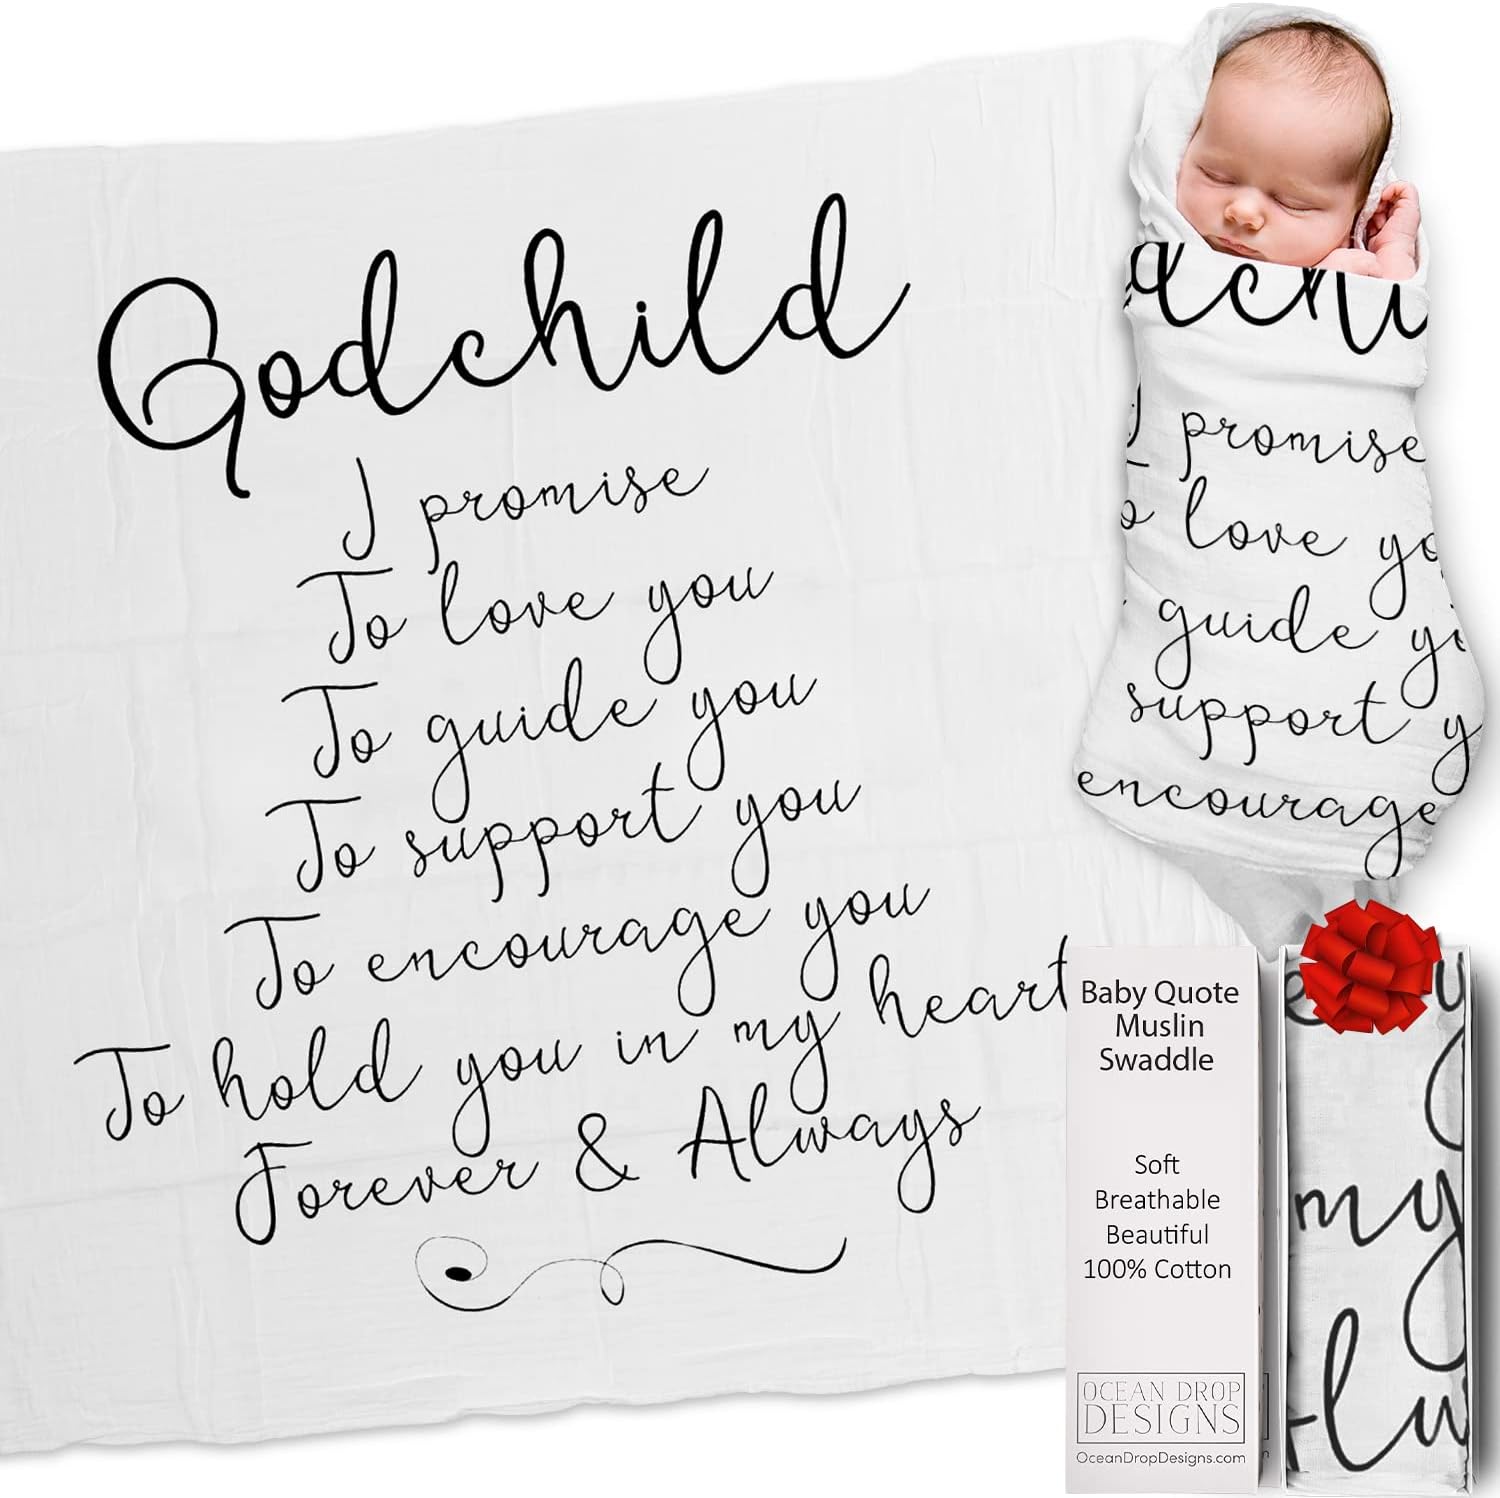 Godchild
I promise
To love you
To guide you
To support you
To encourage you
To hold you in my heart
Forever & Always
dchi
I promise
To love yo
guide yo
support y
encourage
Baby Quote
Muslin
Swaddle
Soft
Breathable
Beautiful
100% Cotton
OCEAN DROP
DESIGNS
OceanDropDesigns.com
my
Alw